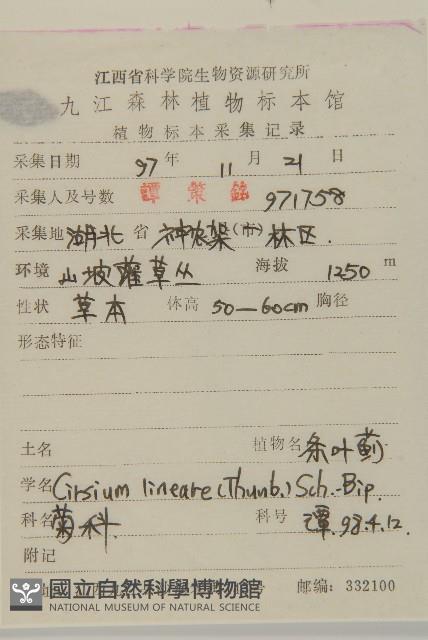 江西省科学院生物资源研究所
九江森林植物标本馆
植物标本采集记录
采集日期 97 年 11 月 21 日
采集人及号数 譚策銘 971758
采集地 湖北 省 神农架 (市) 林区.
环境 山坡灌草丛 海拔 1250 m
性状 草本 体高 50—60cm 胸径
形态特征
土名 植物名 条叶蓟
学名 Cirsium lineare (Thunb.) Sch.-Bip.
科名 菊科 科号 谭.98.4.12.
附记
號 邮编: 332100
國立自然科學博物館
NATIONAL MUSEUM OF NATURAL SCIENCE